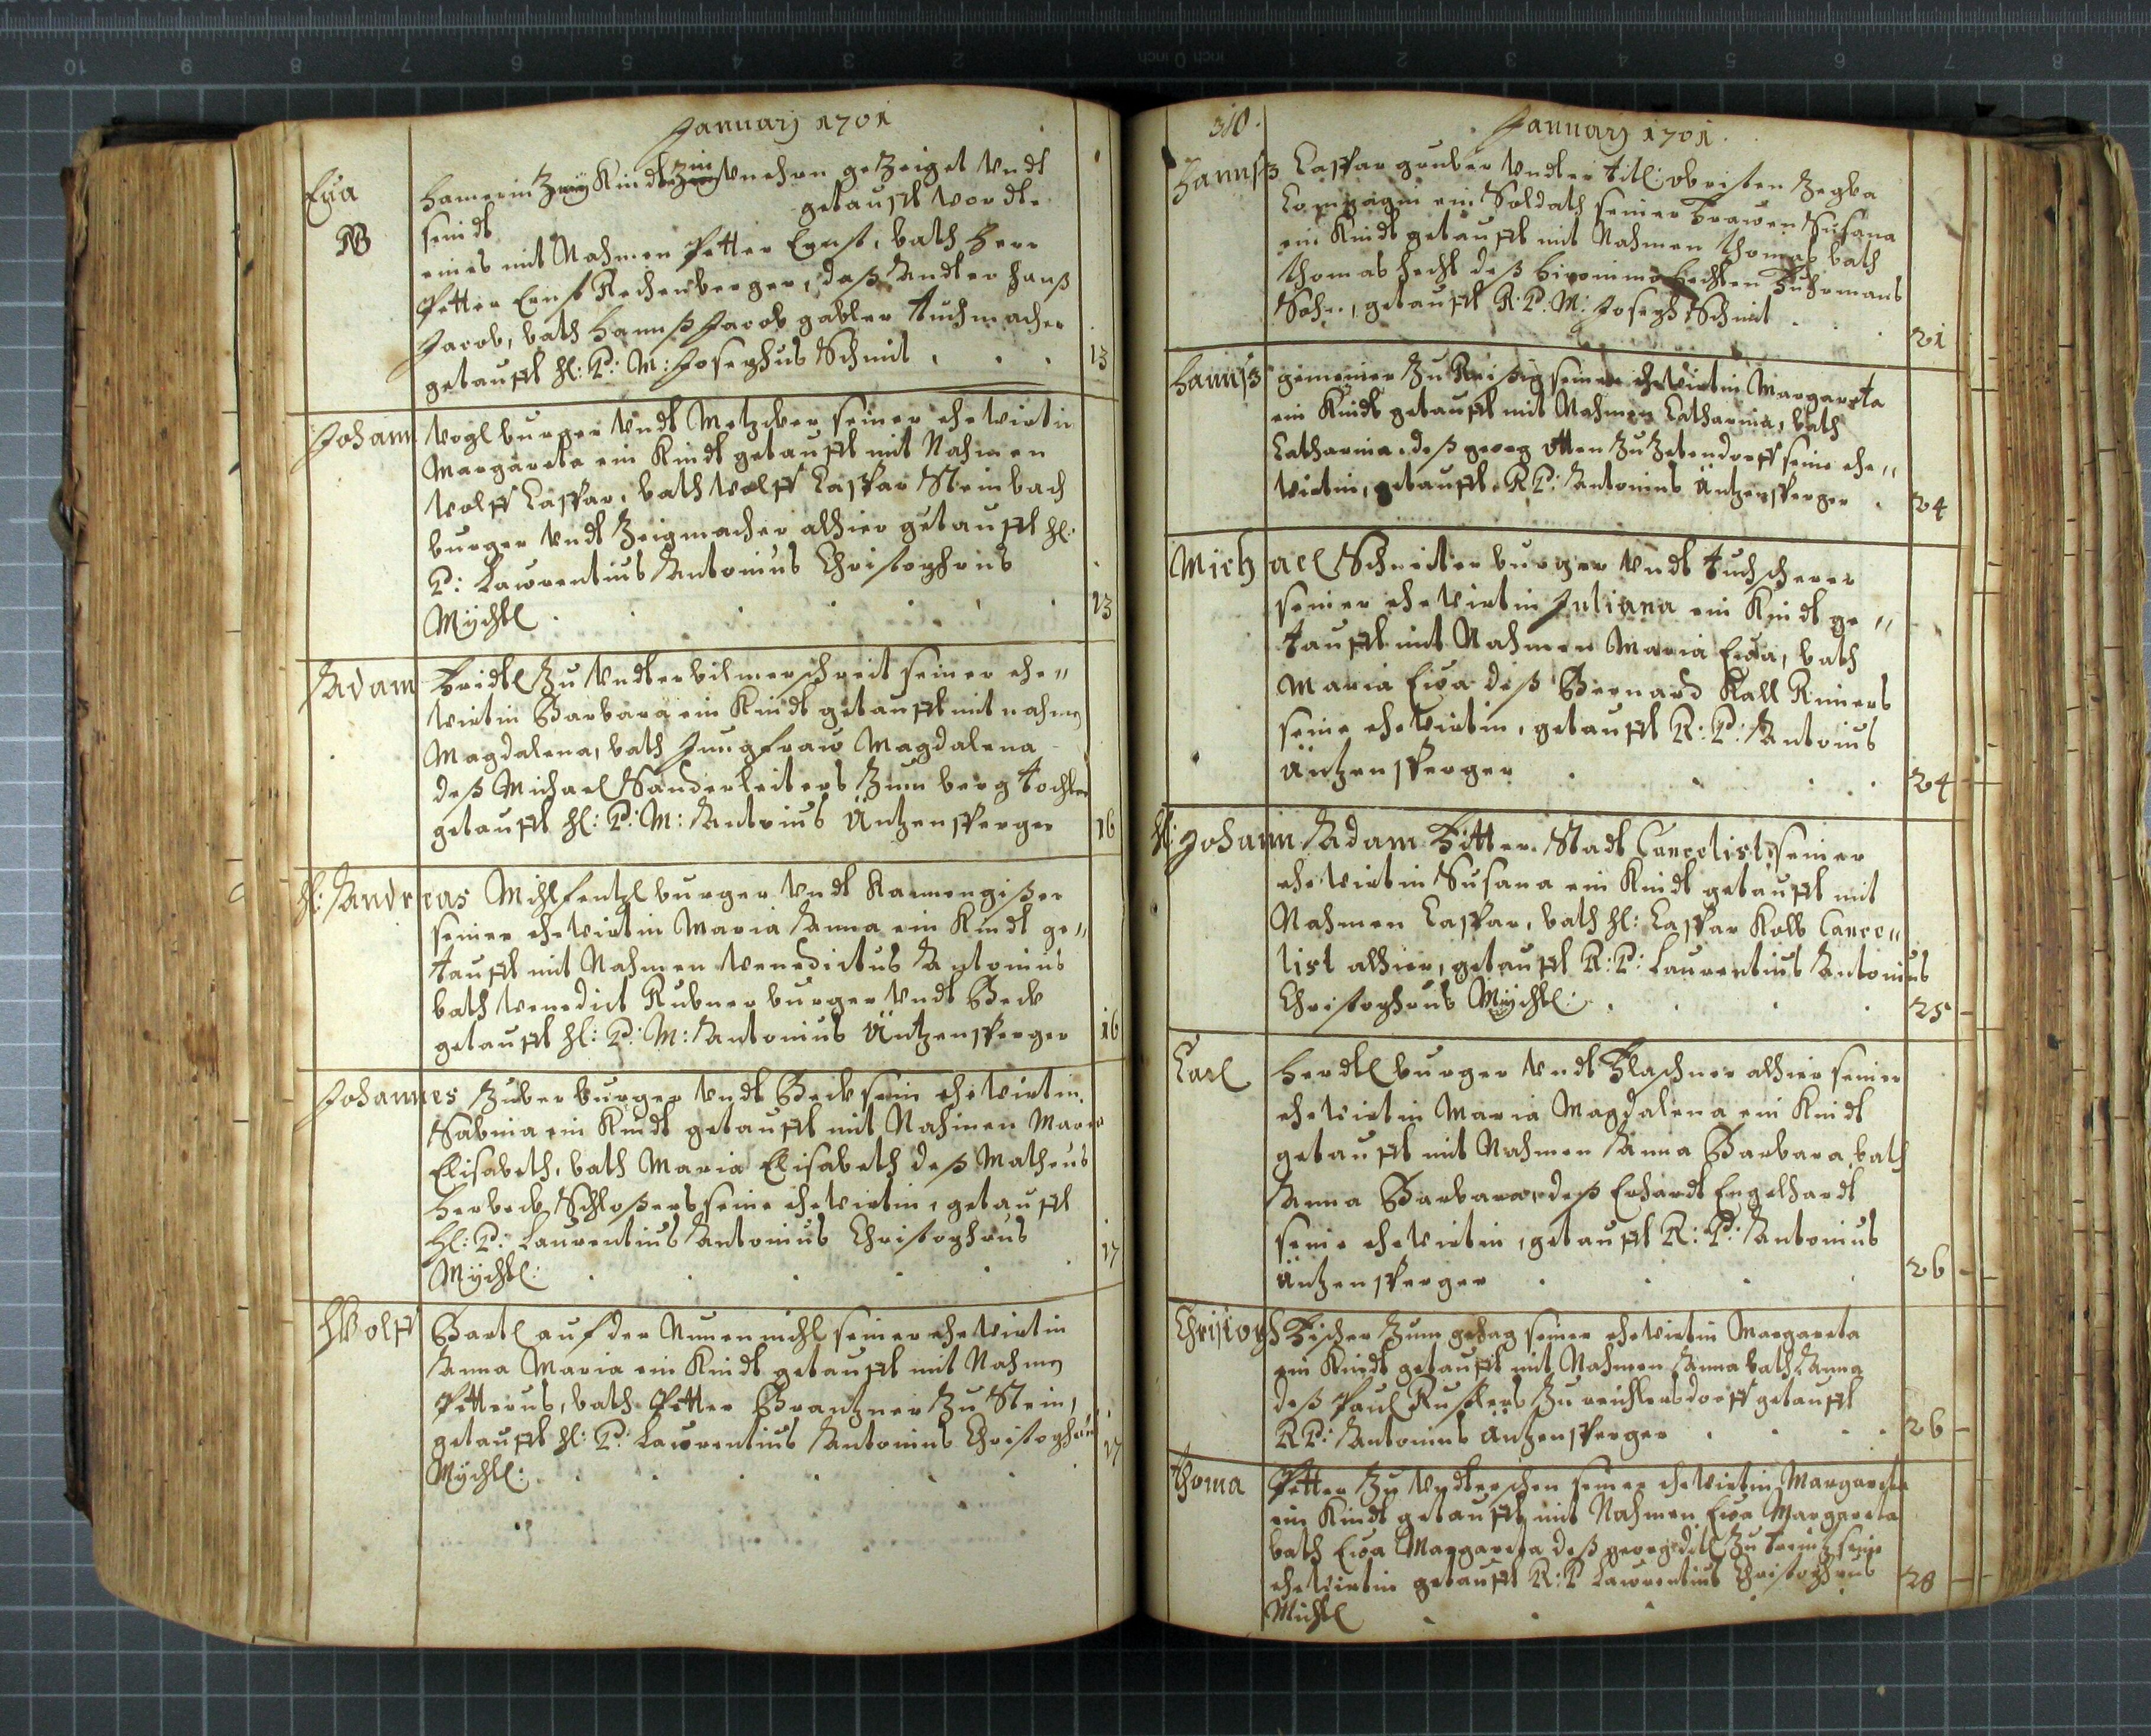 Januarj 1701
Eua hamerin Zweÿ Kindt Zur Vnehren geZeiget Vndt
NB seindt getaufft wordt.
eines mit Nahmen Petter Ernst, bath Herr
Petter Ernst Rechenberger, daß Andter Hanß
Jacob, bath Hannß Jacob gabler tuchmacher
getaufft H: P: M: Josephus Schmit . . . 13
Johann Vogl burger Vndt Metzcker seiner ehewirtin
Margareta ein Kindt getaufft mit Nahmen
Wolff Caspar, bath Wolff Caspar Steinbach
burger Vndt Zeigmacher alhier getaufft H:
P: Lawrentius Antonius Christophrus
Mÿchl . . . 13
Adam Fridl Zu Vndterwilmerschreit seiner ehe„
wirtin Barbara ein Kindt getaufft mit nahmen
Magdalena, bath Jungfraw Magdalena
deß Michael Sanderleiters Zum berg tochter
getaufft H: P: M: Antonius Äntzensperger 16
H: Andreas Michl burger Vndt Kannengißer
seiner ehewirtin Maria Anna ein Kindt ge„
taufft mit Nahmen Venedictus Antonius
bath Venedict Kubner burger Vndt Beck
getaufft H: P: M: Antonius Äntzensperger 16
Johannes Zuber burger Vndt Beck sein ehewirtin
Sabina ein Kindt getaufft mit Nahmen Maria
Elisabeth, bath Maria Elisabeth deß Matheus
Herbeck Schloßers seine ehewirtin, getaufft
H: P: Laurentius Antonius Christophrus
Mÿchl: . . . 17
Wolff Bartl auf der Nunenmihl seiner ehewirtin
Anna Maria ein Kindt getaufft mit Nahmen
Petterus, bath Petter Brantzner Zu Stein,
getaufft H: P: Lawrentius Antonius Christophrus 17
Mÿchl: . . .
310. Januarj 1701.
Hannß Caspar gruber Vndter titl: obristen
Compagni ein Soldath seiner Frawen Susana
ein Kindt getaufft mit Nahmen Thomas bath
Thomas Hecht deß Hechten Fuhrmans
Sohn, getaufft R: P: M: Joseph Schmit . . . 21
Hannß gmeiner Zu seiner ehewirtin Margareta
ein Kindt getaufft mit Nahmen Catharina, bath
Catharina deß georg otten Zu seine ehe„
wirtin, getaufft R P: Antonius Äntzensperger . 24
Michael Schneider burger Vndt tuchscherer
seiner ehewirtin Juliana ein Kindt ge„
taufft mit Nahmen Maria Eva, bath
Maria Eva deß Bernard Kall Rimers
seine ehewirtin, getaufft R: P: Antonius
Äntzensperger . . . 24
H: Johann Adam Fitter Stadt Cancelist seiner
ehewirtin Susana ein Kindt getaufft mit
Nahmen Caspar, bath H: Caspar Kolb Cance„
list alhier, getaufft R: P: Laurentius Antonius
Christophrus Mÿchl: . . . 25
Carl Herdtl burger Vndt Flaschner alhier seiner
ehewirtin Maria Magdalena ein Kindt
getaufft mit Nahmen Anna Barbara, bath
Anna Barbara, deß Erhardt Engelhardt
seine ehewirtin, getaufft R: P: Antonius
Äntzensperger . . . 26
Christoph Fischer Zum gehag seiner ehewirtin Margareta
ein Kindt getaufft mit Nahmen Anna bath Anna
deß Paul Zu reichlersdorff getaufft
R P: Antonius Äntzensperger . . . 26
Thoma Petter Zu seiner ehewirtin Margareta
ein Kindt getaufft mit Nahmen Eva Margareta
bath Eva Margareta deß Zu seine
ehewirtin getaufft R: P Lawrentius Christophrus 28
Michl . . .